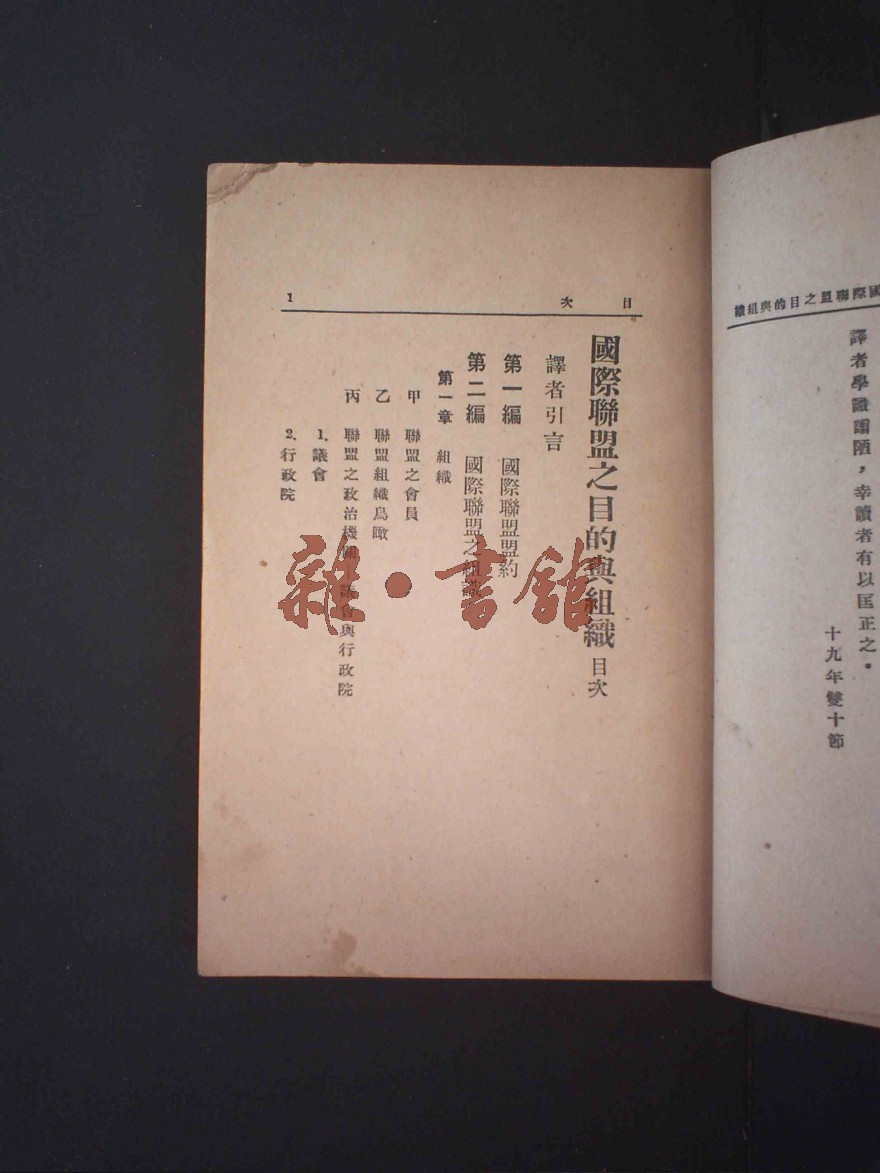 國際聯盟之目的與組織
譯者學識譾陋，幸讀者有以匡正之。
十九年雙十節
目次 1
國際聯盟之目的與組織 目次
譯者引言
第一編 國際聯盟盟約
第二編 國際聯盟之組織
第一章 組織
甲 聯盟之會員
乙 聯盟組織鳥瞰
丙 聯盟之政治機關 議會與行政院
1. 議會
2. 行政院
雜·書館